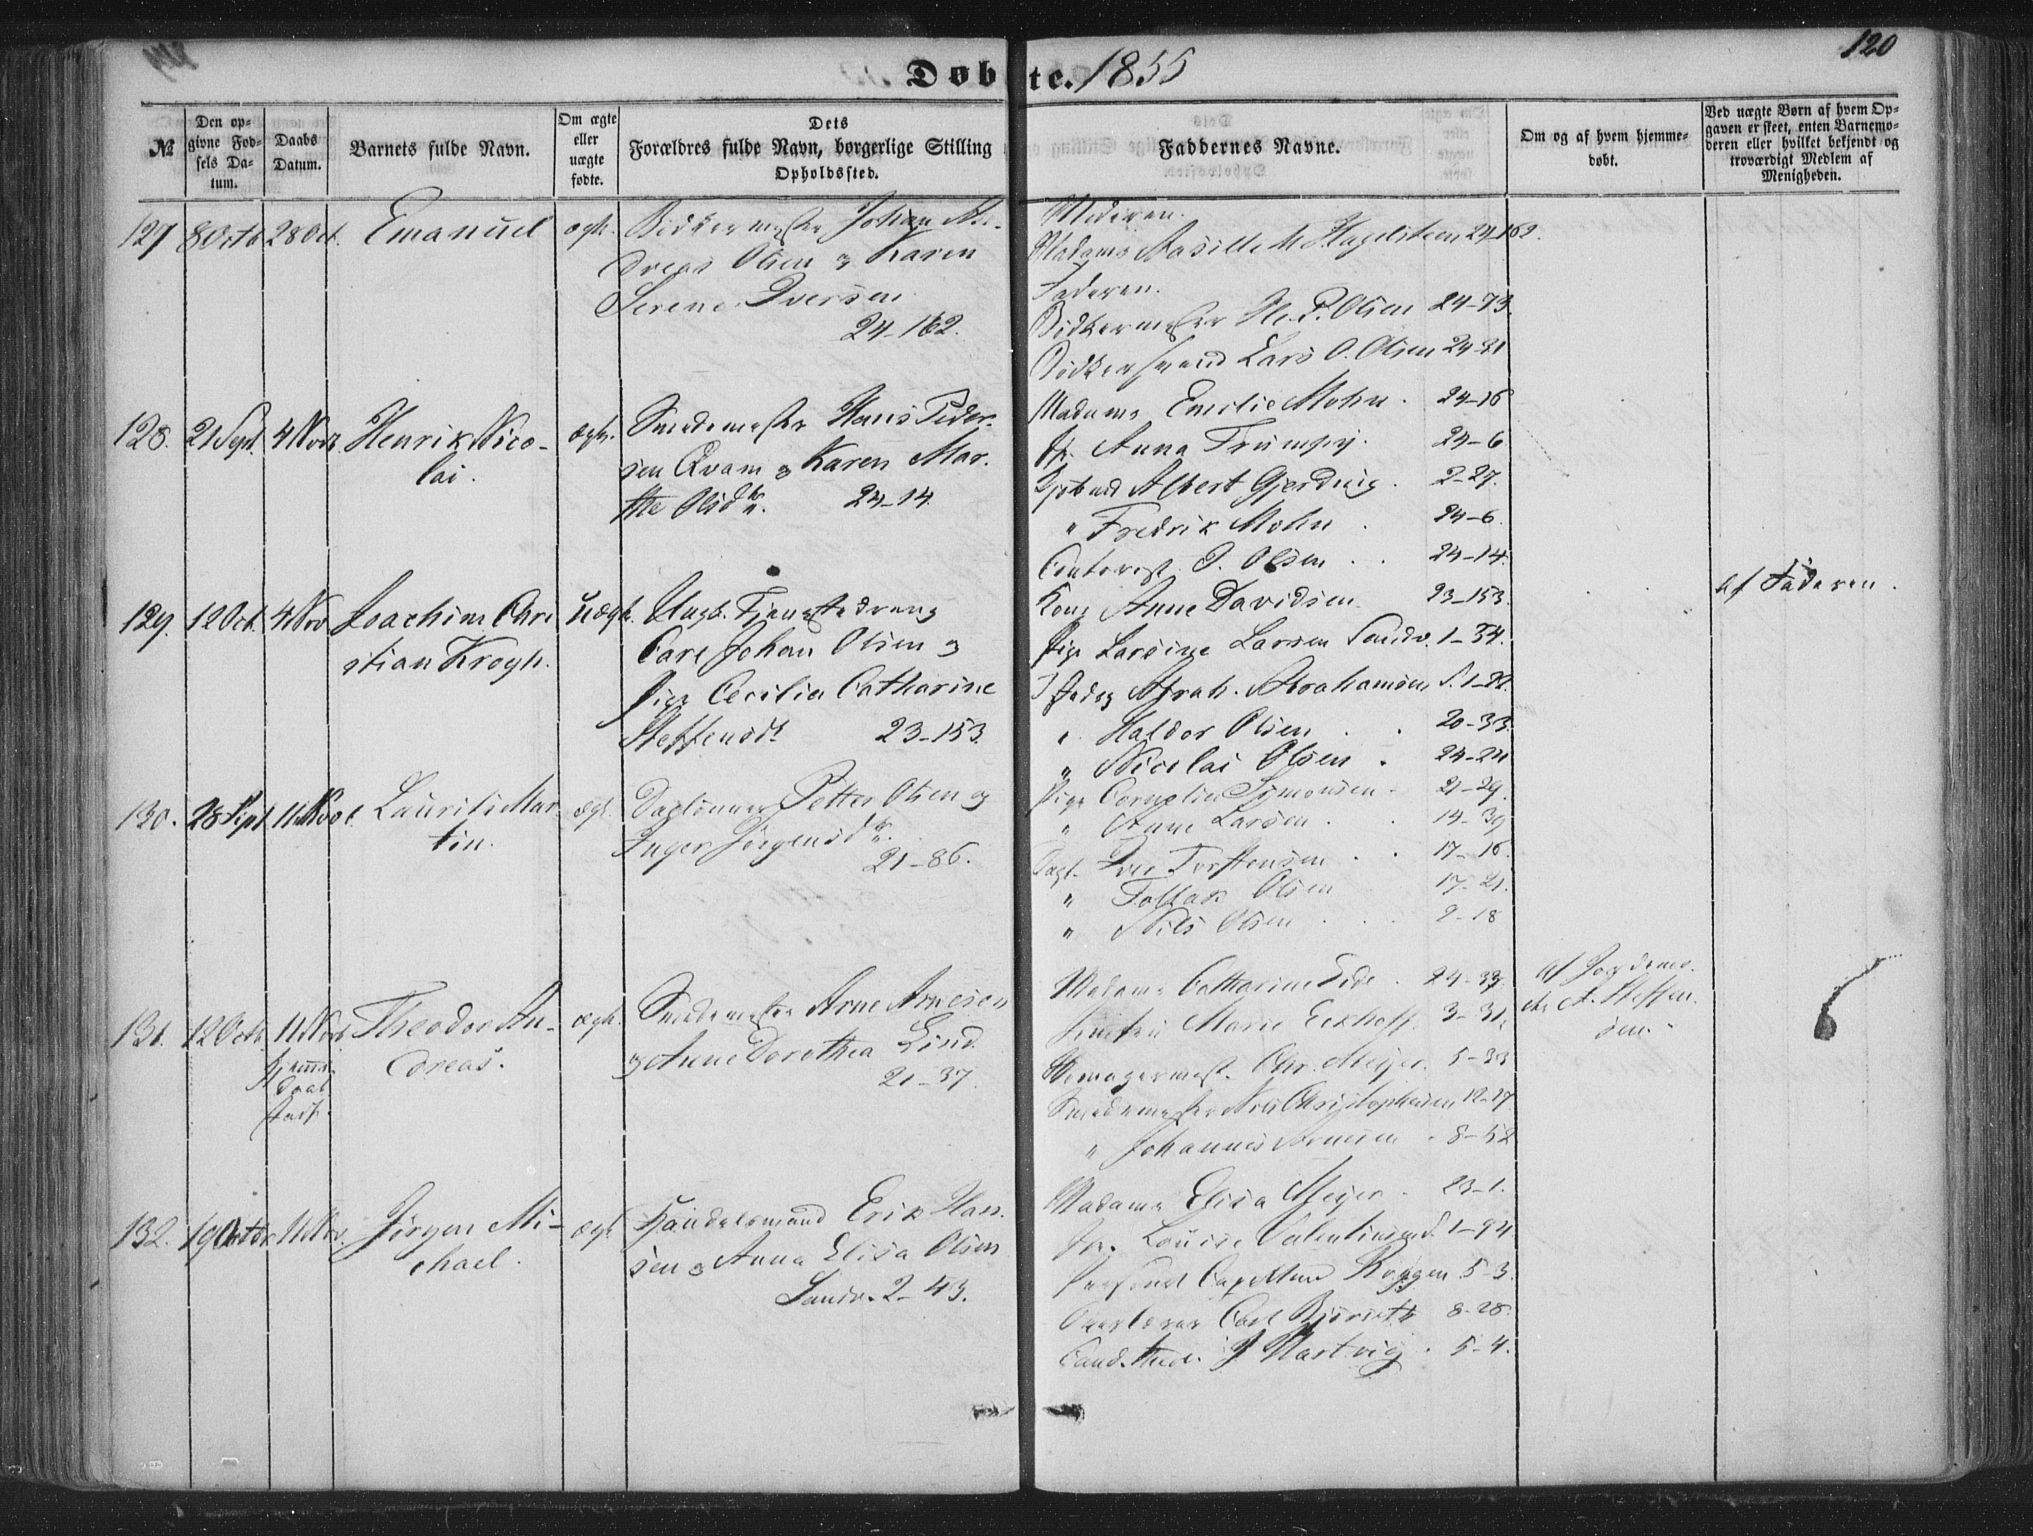 Døbte. 1855
120
№
Den opgivne Fødsels Datum.
Daabs Datum.
Barnets fulde Navn.
Om ægte eller uægte fødte.
Dets
Forældres fulde Navn, borgerlige Stilling
Opholdssted.
Faddernes Navne.
Om og af hvem hjemmedøbt.
Ved uægte Børn af hvem Opgaven er skeet, enten Barnemoderen eller hvilket bekjendt og troværdigt Medlem af Menigheden.
127 8 Octb 28 Oct. Emanuel ægte.
Bødkermester Johan An-
dreas Olsen og Karen
Serene Iversen
24-162.
Moderen.
Madame Hagelsteen 24-162.
Faderen.
Bødkermester P. Olsen 24-73.
Bødkersvend Lars O. Olsen 24-81
128. 21 Sept. 4 Novb Henrik Nico-
lai.
ægte.
Smedemester Hans Peder-
sen Qvam og Karen Mar-
the Olsdtr. 24-14.
Madame Emilie Mohn. 24-16
Jfr. Anna Trumpy. 24-6
Albert Gjerding. 2-27.
" Fredrik Mohn. 24-6.
Contorist P. Olsen 24-14.
129. 12 Oct. 4 Nov Joachim Chri
stian Krogh.
Uægte.
Ungk. Tjenestedreng
Carl Johan Olsen og
Pige Cecilia Catharine
Steffensdt. 23-153.
Kone Anne Davidsen 23-153.
Pige Larsine Larsen Sandv. 1-34.
Abrah. Abrahamsen S. 1-22.
" Haldor Olsen 20-33.
" Nicolai Olsen 24-24
af Faderen.
130. 28 Sept 11 Novb. Laurits Mar-
tin.
ægte
Daglønner Petter Olsen og
Inger Jørgensdtr.
21-86.
Pige Cornelia Symonsen 21-29.
" Anne Larsen. 14-39
Dagl. Iver Torstensen 17-16.
" Tollak Olsen 17-21.
" Nils Olsen 2-18
131. 12 Octb. 11 Novb Theodor An-
dreas.
ægte.
Hjemme-
daab
Smedemester Arne Arnesen
og Anne Dorothea Lind
21-37.
Madame Cathrine Eide. 24-39.
Marie Eckhoff. 3-31.
Chr. Meyer. 5-33
Smedemester Nils Christophersen 12-17
" Johannes Arnesen. 8-52
af Jordemo-
der A. Steffen-
sen.
132. 19 Octbr. 11 Nov. Jørgen Mi-
chael.
ægte
Handelsmand Erik Han-
sen og Anna Elisa Olsen
Sandv. 2-43.
Madame Elisa Meyer. 23-1.
Jfr. Louise Valentinsen S. 1-94
Personel Capellan Koggen 5-3.
Overlærer Carl 8-28.
Cand. theol. J Hartvig. 5-4.